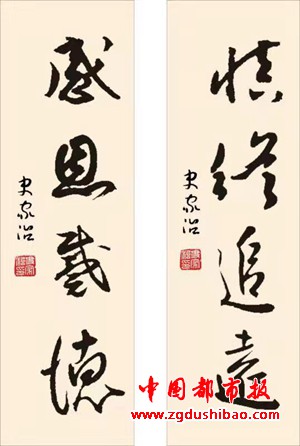 慎終追遠
史家治
感恩戴德
史家治
中国都市报
www.zgdushibao.com